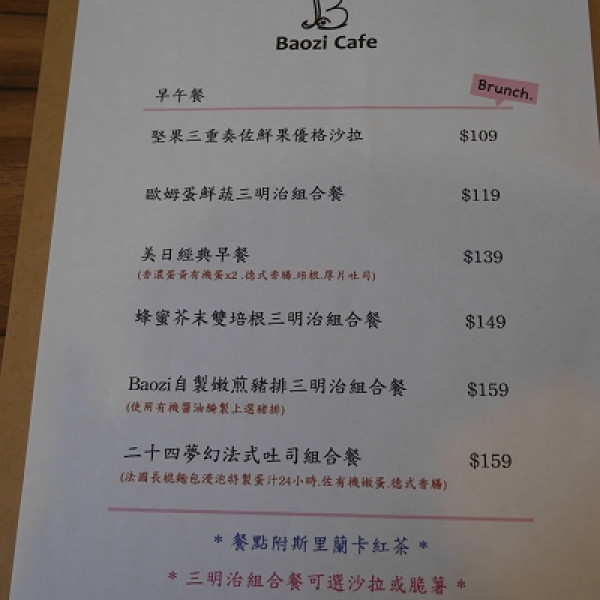 B
Baozi Cafe
早午餐
Brunch.
堅果三重奏佐鮮果優格沙拉 $109
歐姆蛋鮮蔬三明治組合餐 $119
美日經典早餐 $139
(香濃蛋黃有機蛋x2.德式香腸.培根.厚片吐司)
蜂蜜芥末雙培根三明治組合餐 $149
Baozi自製嫩煎豬排三明治組合餐 $159
(使用有機醬油醃製上選豬排)
二十四夢幻法式吐司組合餐 $159
(法國長棍麵包浸泡特製蛋汁24小時.佐有機嫩蛋.德式香腸)
* 餐點附斯里蘭卡紅茶 *
* 三明治組合餐可選沙拉或脆薯 *